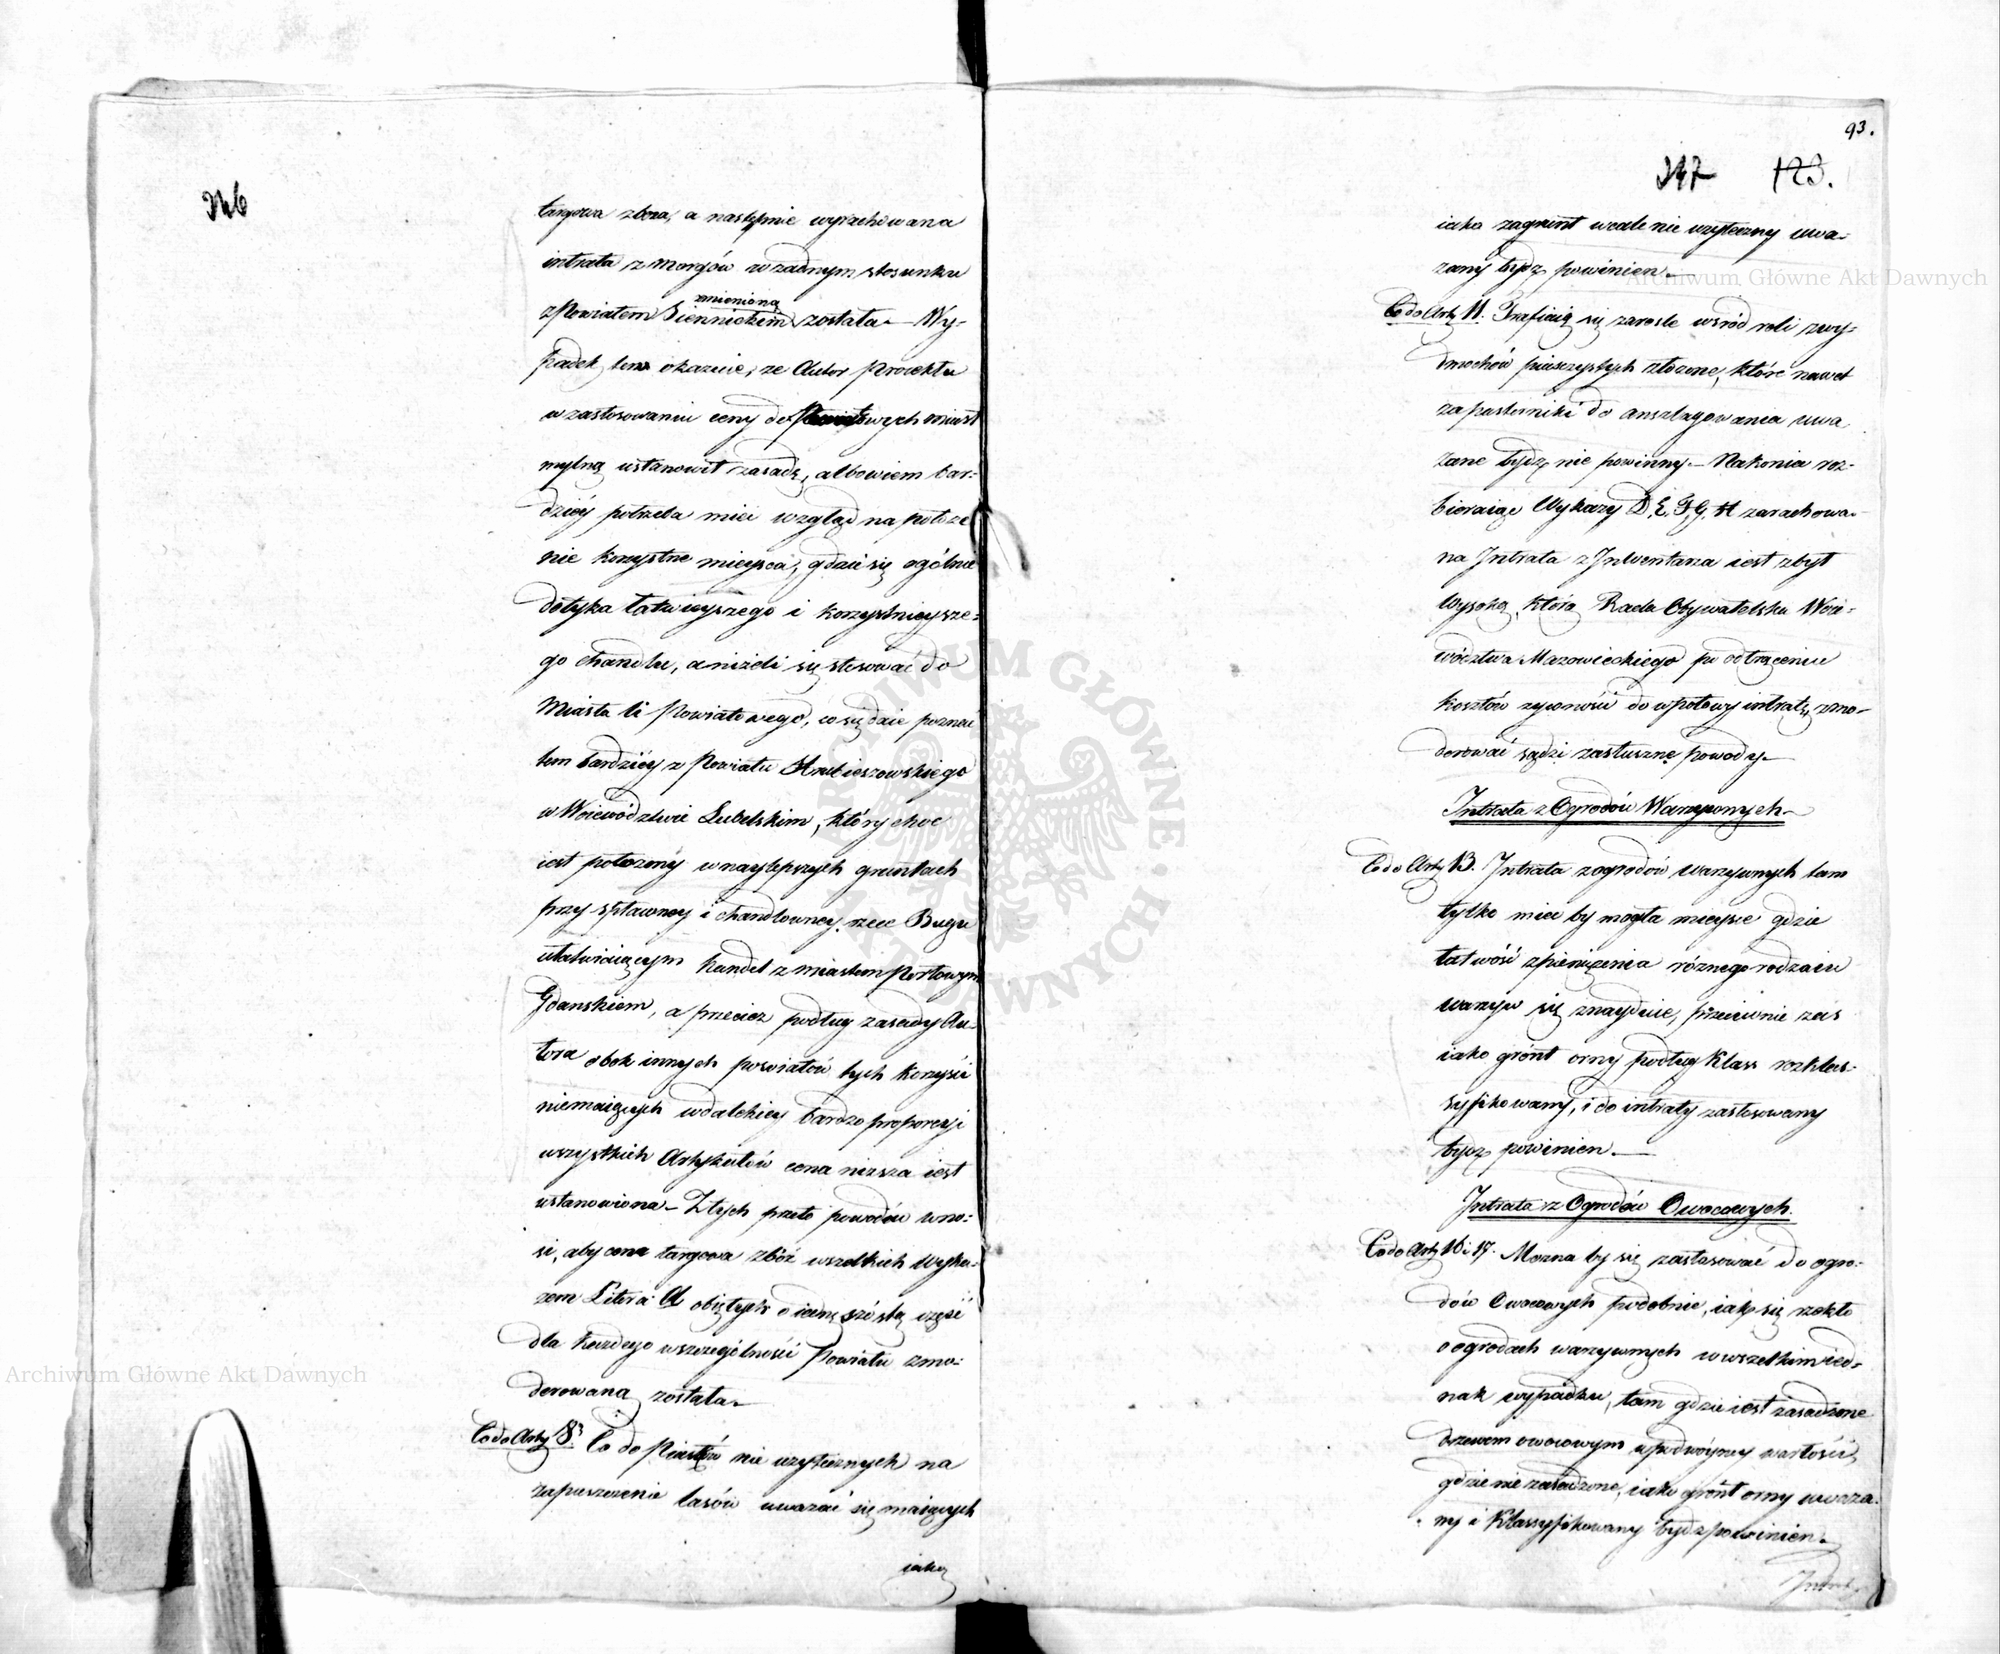 246
targowa zboża, a następnie wyrachowana
intrata z morgów w żadnym stosunku
zmienioną
z Powiatem Siennickim została. – Wy-
padek ten okazuie, że Autor Proiektu
w zastosowaniu ceny do Powiatowych miast
mylną ustanowił zasadę, albowiem bar-
dziéy potrzeba mieć wzgląd na położe
nie korzystne mieysca, gdzie się ogólnie
dotyka łatwieyszego i korzystnieysze-
go chandlu, aniżeli się stosować do
Miasta li Powiatowego, co się daie poznać
tem bardziéy z Powiatu Hrubieszowskiego
w Woiewództwie Lubelskim, który choć
iest położony w naylepszych gruntach
przy spławney i chandlowney rzece Bugu
ułatwiaiącym handel z miastem Portowym
Gdańskiem, a przecież podług zasady Au-
tora obok innych powiatów tych korzyści
niemaiących w dalekiey bardzo proporcyi
wszystkich Artykułów cena niższa iest
ustanowiona – Z tych przeto powodów wno-
si, aby cena targowa zbóż wszelkich Wyka-
zem Litera A obiętych o iedną szóstą część
dla każdego w szczególności Powiatu zmo-
derowaną została. –
Co do Arty 8. Co do Piasków nie użytecznych na
zapuszczenie lasów uważać się maiących
iako
93.
247 123.
iako za grunt wcale nie użyteczny uwa-
żany bydź powinien. –
Co do Arty 11. Trafiaią się zarosle wśród roli z wy-
dmochów piasczystych złożone, które nawet
za pastwiska do anszlagowania uwa
żane bydź nie powinny. – Nakoniec roz-
bieraiąc Wykazy D, E, F, G, H zarachowa-
na Intrata z Inwentarza iest zbyt
wysoką, którą Rada Obywatelska Woie-
wództwa Mazowieckiego po odtrąceniu
kosztów żywności do wpołowy intratę zmo-
derować sądzi zasłuszne powody. –
Intrata z Ogrodów Warzywnych –
Co do Arty 13. Intrata z ogrodów warzywnych tam
tylko mieć by mogła mieysce gdzie
łatwość spieniężenia różnego rodzaiu
warzyw się znayduie, przeciwnie zaś
iako grónt orny podług Klass rozklas-
syfikowany, i do intraty zastosowany
bydź powinien. –
Intrata z Ogrodów Owocowych.
Co do Arty 16 i 17. Można by się zastosować do ogro-
dów Owocowych podobnie, iak się rzekło
o ogrodach warzywnych w wszelkim ied-
nak wypadku, tam gdzie iest zasadzone
drzewem owocowym w podwóyney wartości,
gdzie nie zasadzone, iako grónt orny uważa-
ny i Klassyfikowany bydź powinien. –
Archiwum Główne Akt Dawnych
Archiwum Główne Akt Dawnych
ARCHIWUM GŁÓWNE AKT DAWNYCH